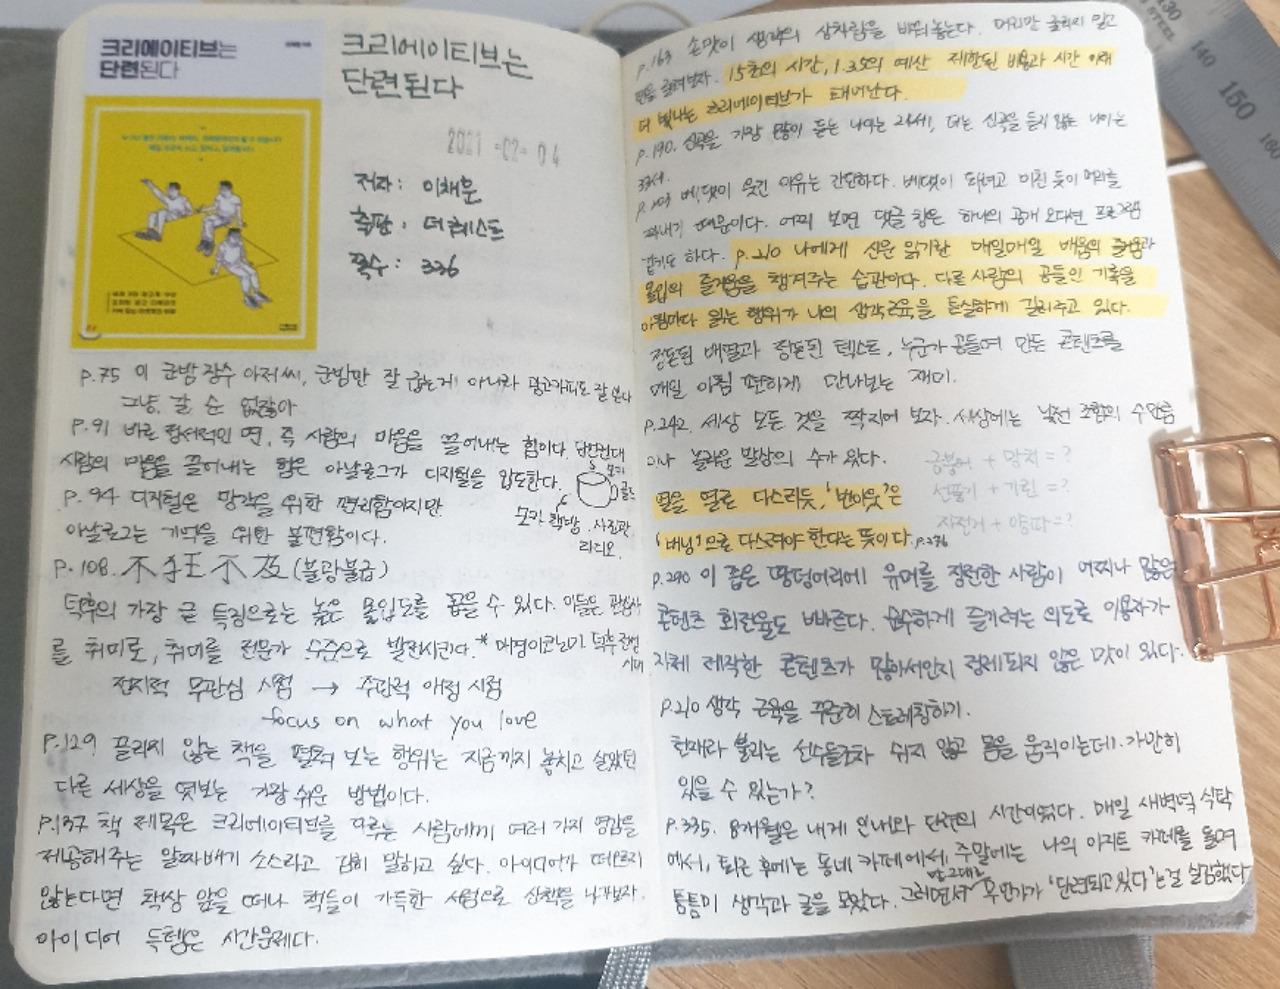 크리에이티브는
단련된다
크리에이티브는
단련된다
2021 -02- 04
저자 : 이채훈
출판 : 더퀘스트
쪽수 : 336
p.75 이 군밤장수 아저씨, 군밤만 잘 굽는게 아니라 광고카피도 잘 쓴다
그냥 갈 순 없잖아
p.91 바로 정서적인 면, 즉 사람의 마음을 끌어내는 힘이다.
사람의 마음을 끌어내는 힘은 아날로그가 디지털을 압도한다.
p.94 디지털은 망각을 위한 편리함이지만
아날로그는 기억을 위한 불편함이다.
사진관
라디오
p.108. 不狂不及 (불광불급)
덕후의 가장 큰 특징으로는 높은 몰입도를 꼽을 수 있다. 이들은 관심사
를 취미로, 취미를 전문가 수준으로 발전시킨다.* 덕후전성
시대
전지적 무관심 시점 → 주관적 애정 시점
focus on what you love
p.129 끌리지 않는 책을 펼쳐 보는 행위는 지금까지 놓치고 살았던
다른 세상을 엿보는 가장 쉬운 방법이다.
p.137 책 제목은 크리에이티브를 다루는 사람에게 여러 가지 영감을
제공해주는 알짜배기 소스라고 감히 말하고 싶다. 아이디어가 떠오르지
않는다면 책상 앞을 떠나 책들이 가득한 서점으로 산책을 나가보자.
아이디어 득템은 시간문제다.
p.163 손맛이 생각의 상차림을 바꿔놓는다. 머리만 굴리지 말고
펜을 굴려보자. 15초의 시간, 1.3%의 예산 제한된 비용과 시간 아래
더 빛나는 크리에이티브가 태어난다.
p.190. 신곡을 가장 많이 듣는 나이는 24세, 더는 신곡을 듣지 않는 나이는
33세.
베댓이 웃긴 이유는 간단하다. 베댓이 되려고 미친 듯이 머리를
짜내기 때문이다. 어찌 보면 댓글 창은 하나의 공개 오디션 프로그램
같기도 하다. p.210 나에게 신문 읽기란 매일매일 배움의 즐거움과
몰입의 즐거움을 챙겨주는 습관이다. 다른 사람의 공들인 기록을
아침마다 읽는 행위가 나의 생각근육을 튼실하게 길러주고 있다.
정돈된 배열과 정돈된 텍스트, 누군가 공들여 만든 콘텐츠를
매일 아침 편하게 만나보는 재미.
p.242. 세상 모든 것을 짝지어 보자. 세상에는 낯선 조합의 수만큼
이나 놀라운 발상의 수가 있다.
금붕어 + 망치 = ?
선풍기 + 기린 = ?
자전거 + 야자 = ?
열을 열로 다스리듯, '번아웃'은
'버닝'으로 다스려야 한다는 뜻이다. p.276
p.290 이 좁은 땅덩어리에 유머를 장전한 사람이 어찌나 많은지
콘텐츠 회전율도 빠르다. 순수하게 즐기려는 의도로 이용자가
자체 제작한 콘텐츠가 많아서인지 정제되지 않은 맛이 있다.
p.210 생각 근육을 꾸준히 스트레칭하기.
천재라 불리는 선수들조차 쉬지 않고 몸을 움직이는데! 가만히
있을 수 있는가?
p.335. 8개월은 내게 인내와 단련의 시간이었다. 매일 새벽녘 식탁
에서, 퇴근 후에는 동네 카페에서, 주말에는 나의 아지트 카페를 돌며
틈틈이 생각과 글을 모았다. 그러면서 말 그대로 무언가가 '단련되고 있다'는 걸 실감했다
130
STEEL
140
150
160